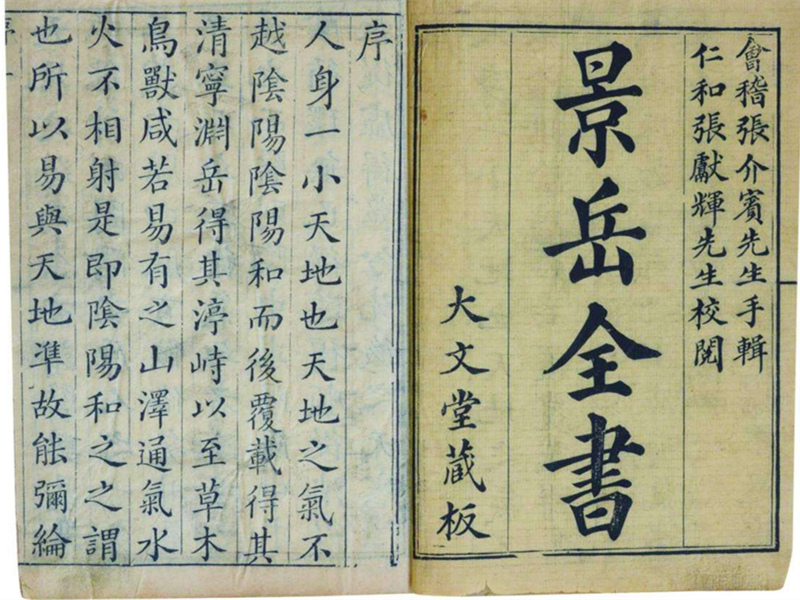 會稽張介賓先生手輯
仁和張獻輝先生校閱
景岳全書
大文堂蔵板
序
人身一小天地也天地之氣不
越陰陽陰陽和而後覆載得其
清寧淵岳得其渟峙以至草木
鳥獸咸若易有之山澤通氣水
火不相射是即陰陽和之之謂
也所以易與天地準故能彌綸